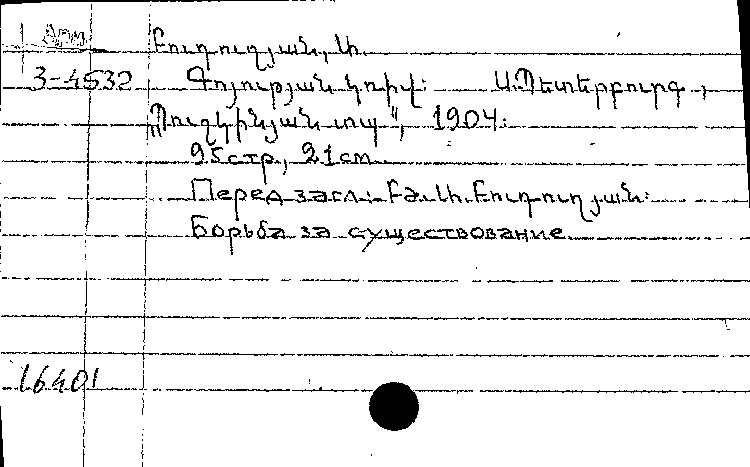 Арм
Բուդուղյան, Ա.
3-4532 Գոյության կռիվ: Ս.Պետերբուրգ,
„Պուշկինյան տպ“, 1904.
95стр, 21см
Перед загл: Բժ. Ա. Բուդուղյան:
Борьба за существование
16401